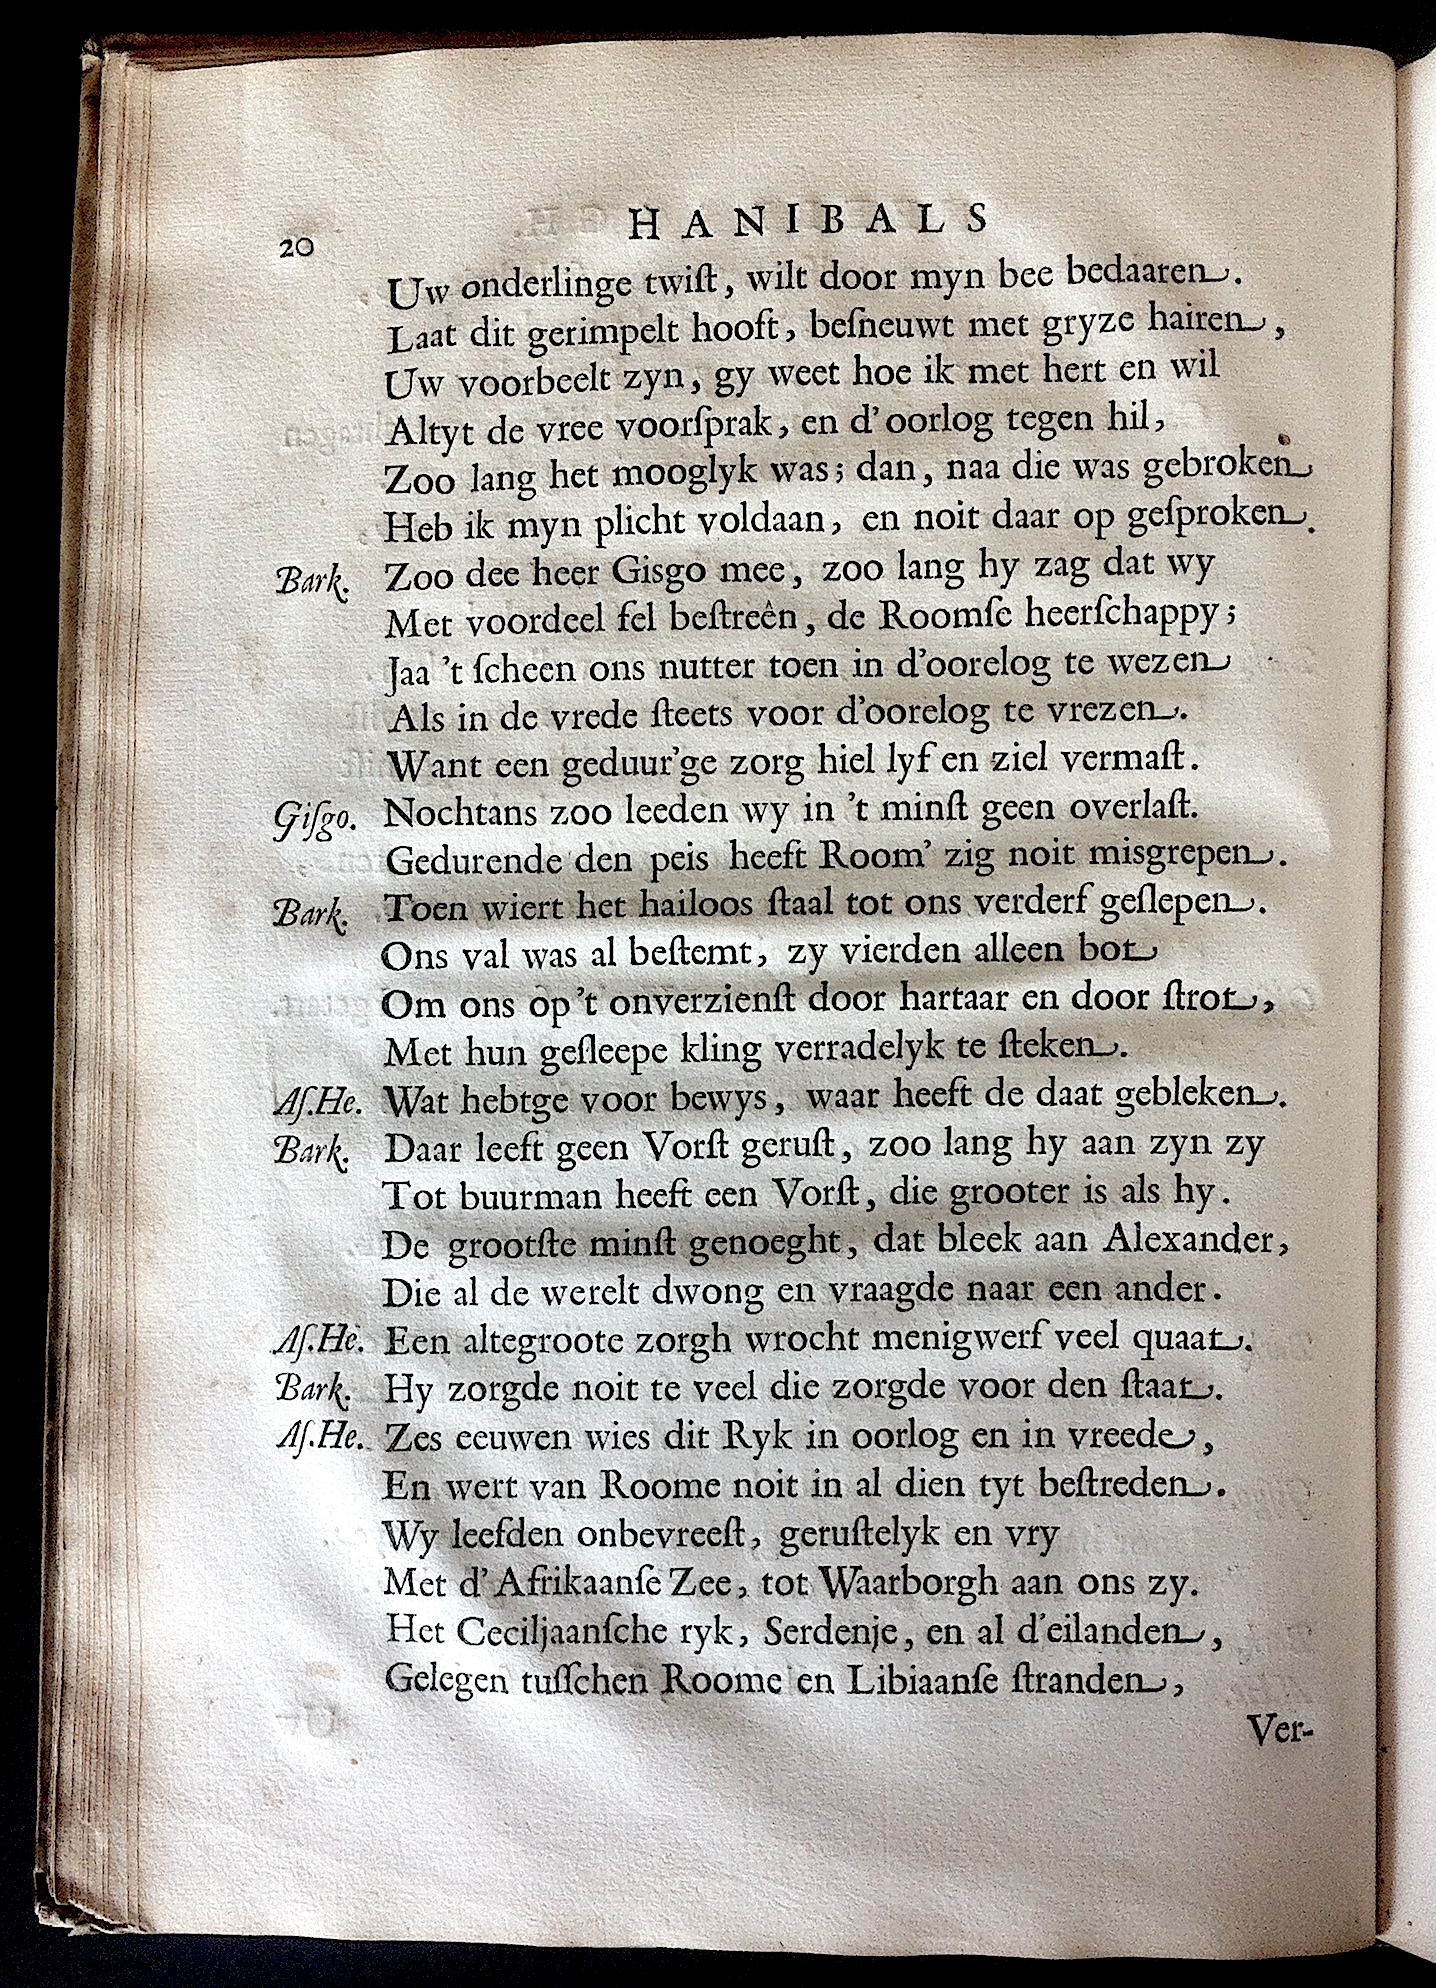 20 HANIBALS
Uw onderlinge twiſt, wilt door myn bee bedaaren.
Laat dit gerimpelt hooft, beſneuwt met gryze hairen,
Uw voorbeelt zyn, gy weet hoe ik met hert en wil
Altyt de vree voorſprak, en d'oorlog tegen hil,
Zoo lang het mooglyk was; dan, naa die was gebroken
Heb ik myn plicht voldaan, en noit daar op geſproken.
Bark. Zoo dee heer Gisgo mee, zoo lang hy zag dat wy
Met voordeel fel beſtreên, de Roomſe heerſchappy;
Jaa 't ſcheen ons nutter toen in d'oorelog te wezen
Als in de vrede ſteets voor d'oorelog te vrezen.
Want een geduur'ge zorg hiel lyf en ziel vermaſt.
Giſgo. Nochtans zoo leeden wy in 't minſt geen overlaſt.
Gedurende den peis heeft Room' zig noit misgrepen.
Bark. Toen wiert het hailoos ſtaal tot ons verderf geſlepen.
Ons val was al beſtemt, zy vierden alleen bot
Om ons op 't onverzienſt door hartaar en door ſtrot,
Met hun geſleepe kling verradelyk te ſteken.
Aſ.He. Wat hebtge voor bewys, waar heeft de daat gebleken.
Bark. Daar leeft geen Vorſt geruſt, zoo lang hy aan zyn zy
Tot buurman heeft een Vorſt, die grooter is als hy.
De grootſte minſt genoeght, dat bleek aan Alexander,
Die al de werelt dwong en vraagde naar een ander.
Aſ.He. Een altegroote zorgh wrocht menigwerf veel quaat.
Bark. Hy zorgde noit te veel die zorgde voor den ſtaat.
Aſ.He. Zes eeuwen wies dit Ryk in oorlog en in vreede,
En wert van Roome noit in al dien tyt beſtreden.
Wy leefden onbevreeſt, geruſtelyk en vry
Met d'Afrikaanſe Zee, tot Waarborgh aan ons zy.
Het Ceciljaanſche ryk, Serdenje, en al d'eilanden,
Gelegen tuſſchen Roome en Libiaanſe ſtranden,
Ver-